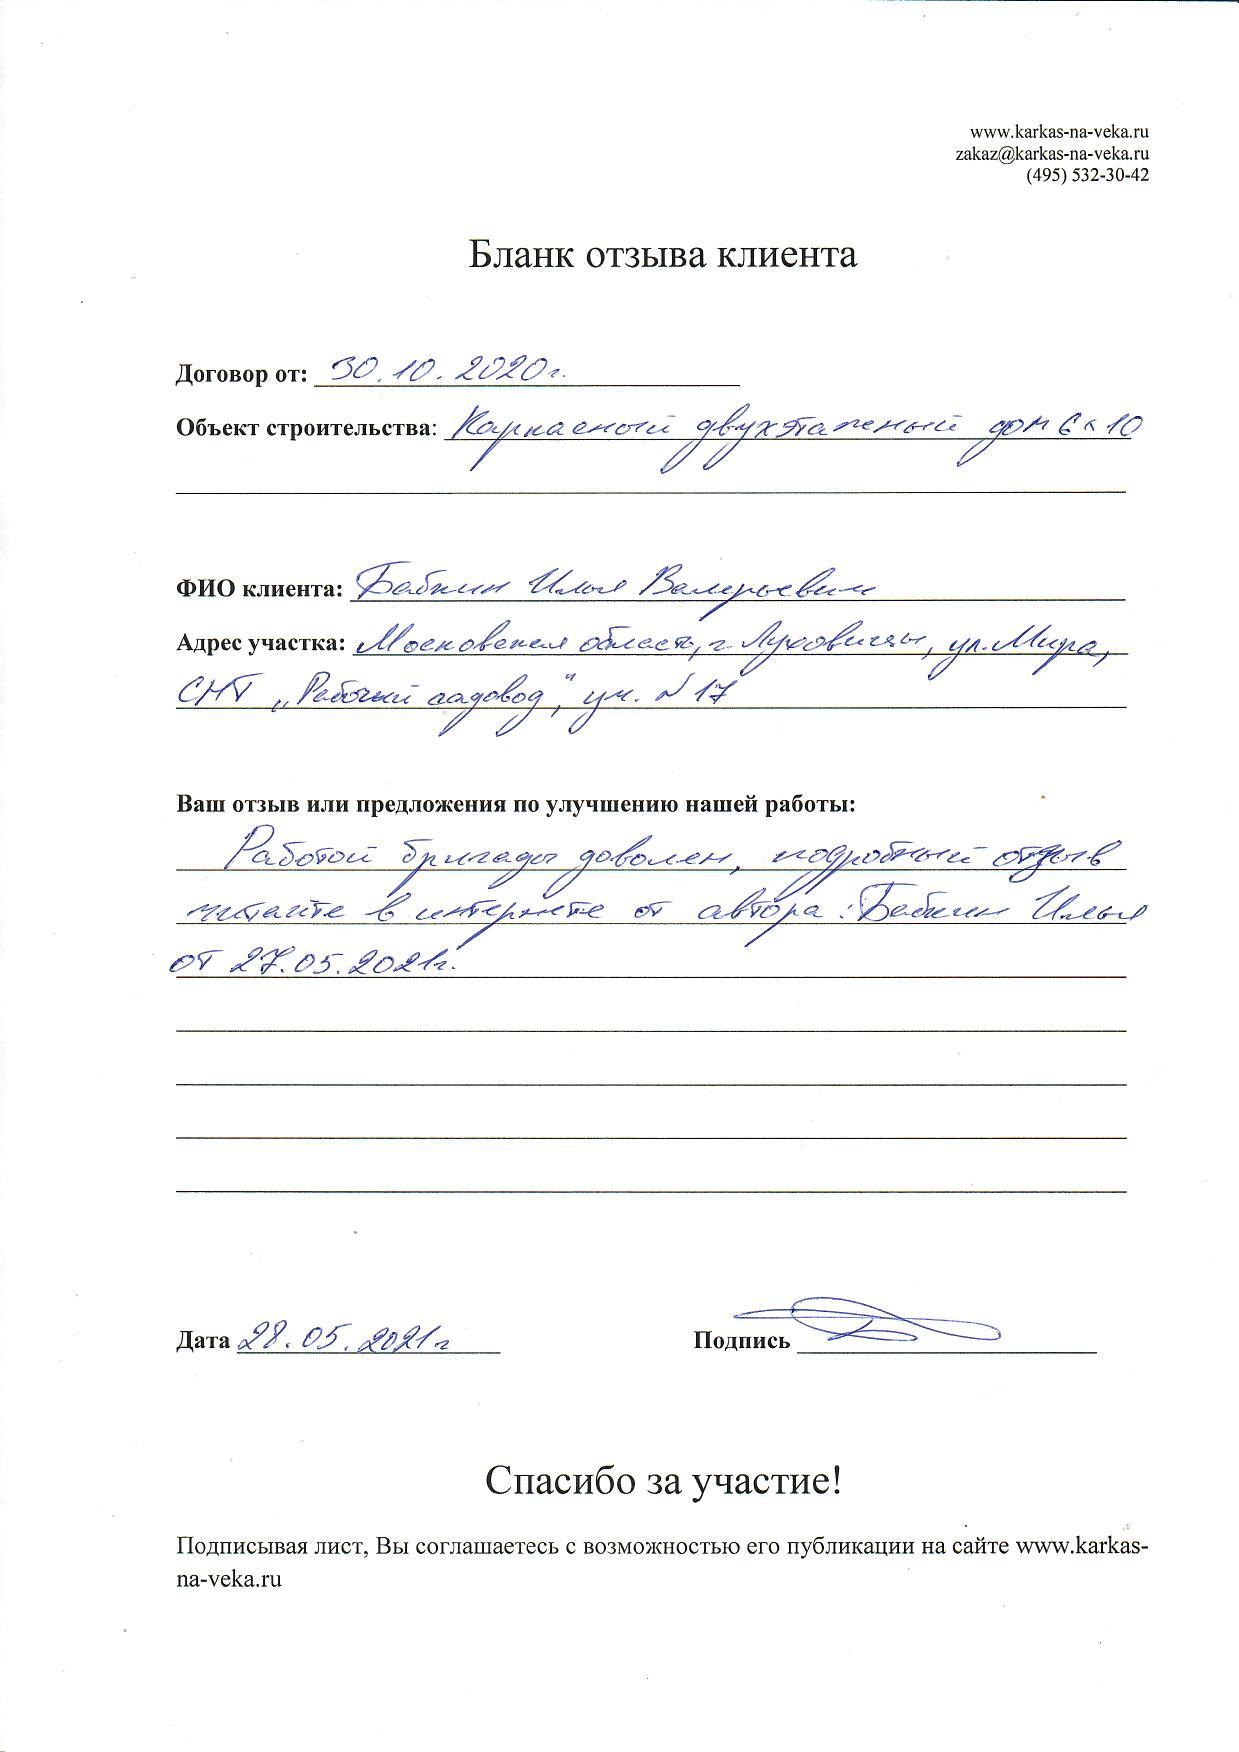 www.karkas-na-veka.ru
zakaz@karkas-na-veka.ru
(495) 532-30-42
Бланк отзыва клиента
Договор от: 30.10.2020г.
Объект строительства: Каркасный двухэтажный дом 6х10
ФИО клиента: Бабкин Илья Валерьевич
Адрес участка: Московская область, г. Луховицы, ул. Мира,
СНТ „Рабочий садовод“, уч. №17
Ваш отзыв или предложения по улучшению нашей работы:
Работой бригады доволен, подробный отзыв
читайте в интернете от автора: Бабкин Илья
от 27.05.2021г.
Дата 28.05.2021г Подпись
Спасибо за участие!
Подписывая лист, Вы соглашаетесь с возможностью его публикации на сайте www.karkas-
na-veka.ru